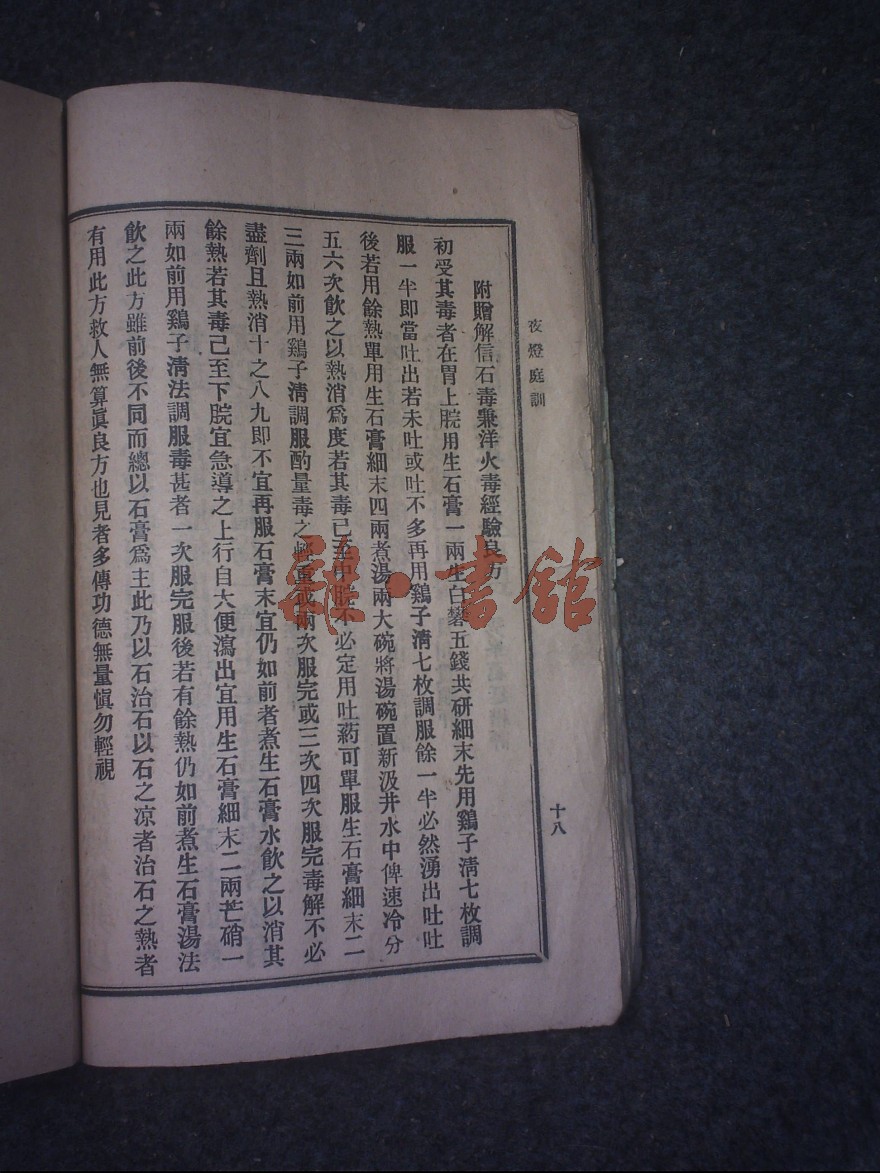 夜燈庭訓
十八
附贈解信石毒兼洋火毒經驗良方
初受其毒者在胃上脘用生石膏一兩生白礬五錢共研細末先用鷄子淸七枚調
服一半即當吐出若未吐或吐不多再用鷄子淸七枚調服餘一半必然湧出吐吐
後若用餘熱單用生石膏細末四兩煮湯兩大碗將湯碗置新汲井水中俾速冷分
五六次飲之以熱消爲度若其毒已至中脘不必定用吐葯可單服生石膏細末二
三兩如前用鷄子淸調服酌量毒之輕重或兩次服完或三次四次服完毒解不必
盡劑且熱消十之八九即不宜再服石膏末宜仍如前者煮生石膏水飲之以消其
餘熱若其毒已至下脘宜急導之上行自大便瀉出宜用生石膏細末二兩芒硝一
兩如前用鷄子淸法調服毒甚者一次服完服後若有餘熱仍如前煮生石膏湯法
飲之此方雖前後不同而總以石膏爲主此乃以石治石以石之凉者治石之熱者
有用此方救人無算眞良方也見者多傳功德無量愼勿輕視
書館